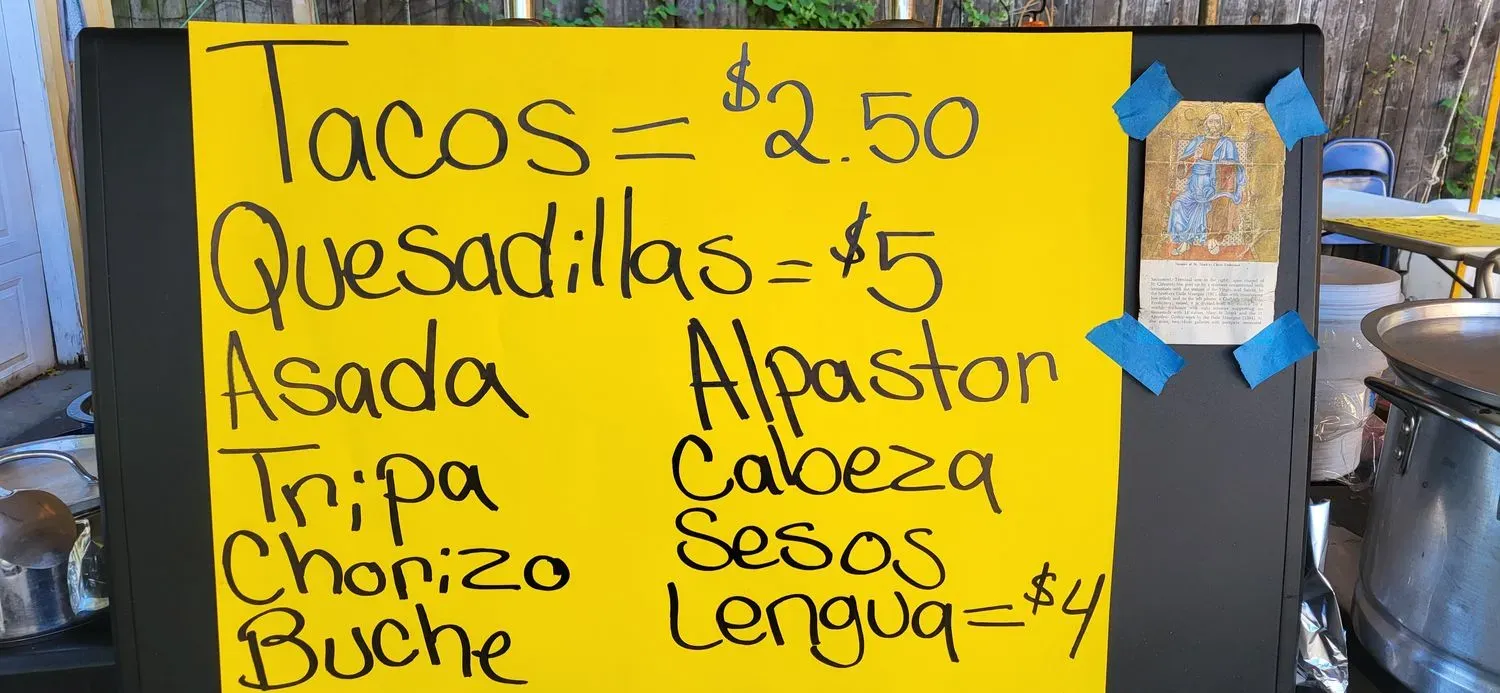 Tacos = $2.50
Quesadillas = $5
Asada
Alpastor
Tripa
Cabeza
Chorizo
Sesos
Buche
Lengua = $4